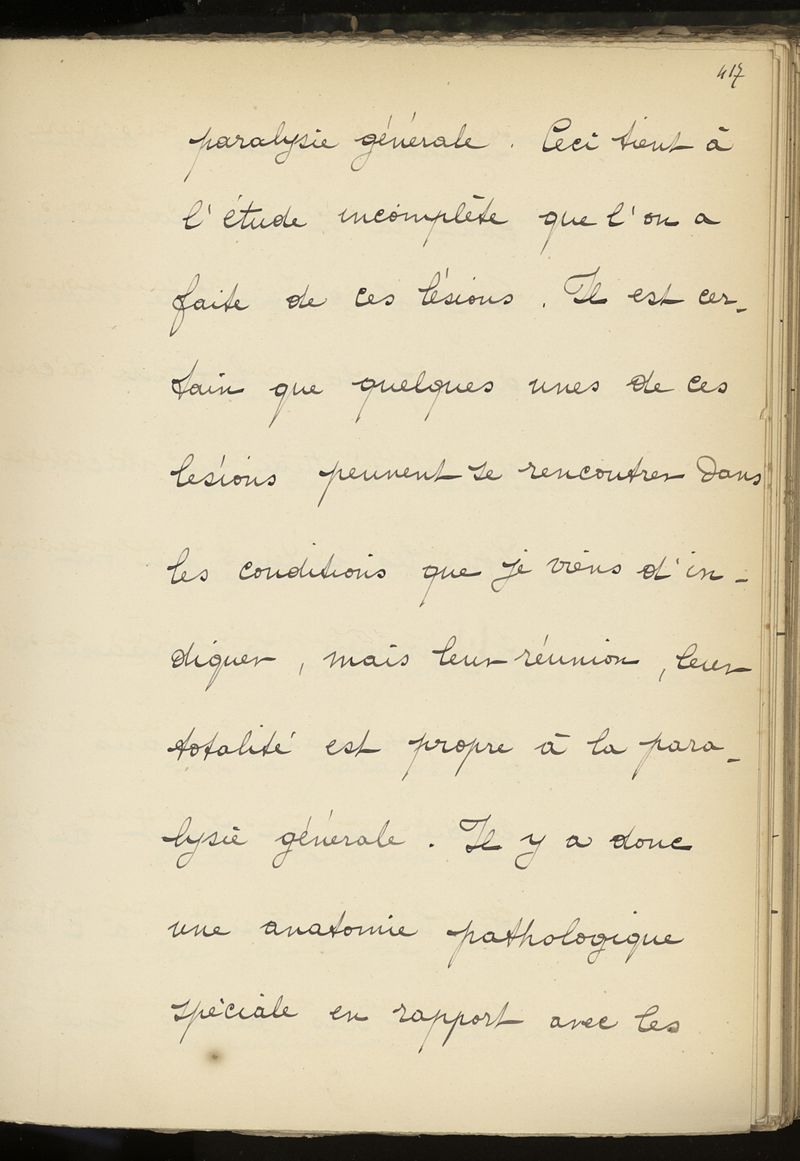 417
paralysie générale. Ceci tient à
l'étude incomplète que l'on a
faite de ces lésions. Il est cer-
tain que quelques unes de ces
lésions peuvent se rencontrer dans
les conditions que je viens d'in-
diquer, mais leur réunion, leur
totalité est propre à la para-
lysie générale. Il y a donc
une anatomie pathologique
spéciale en rapport avec les